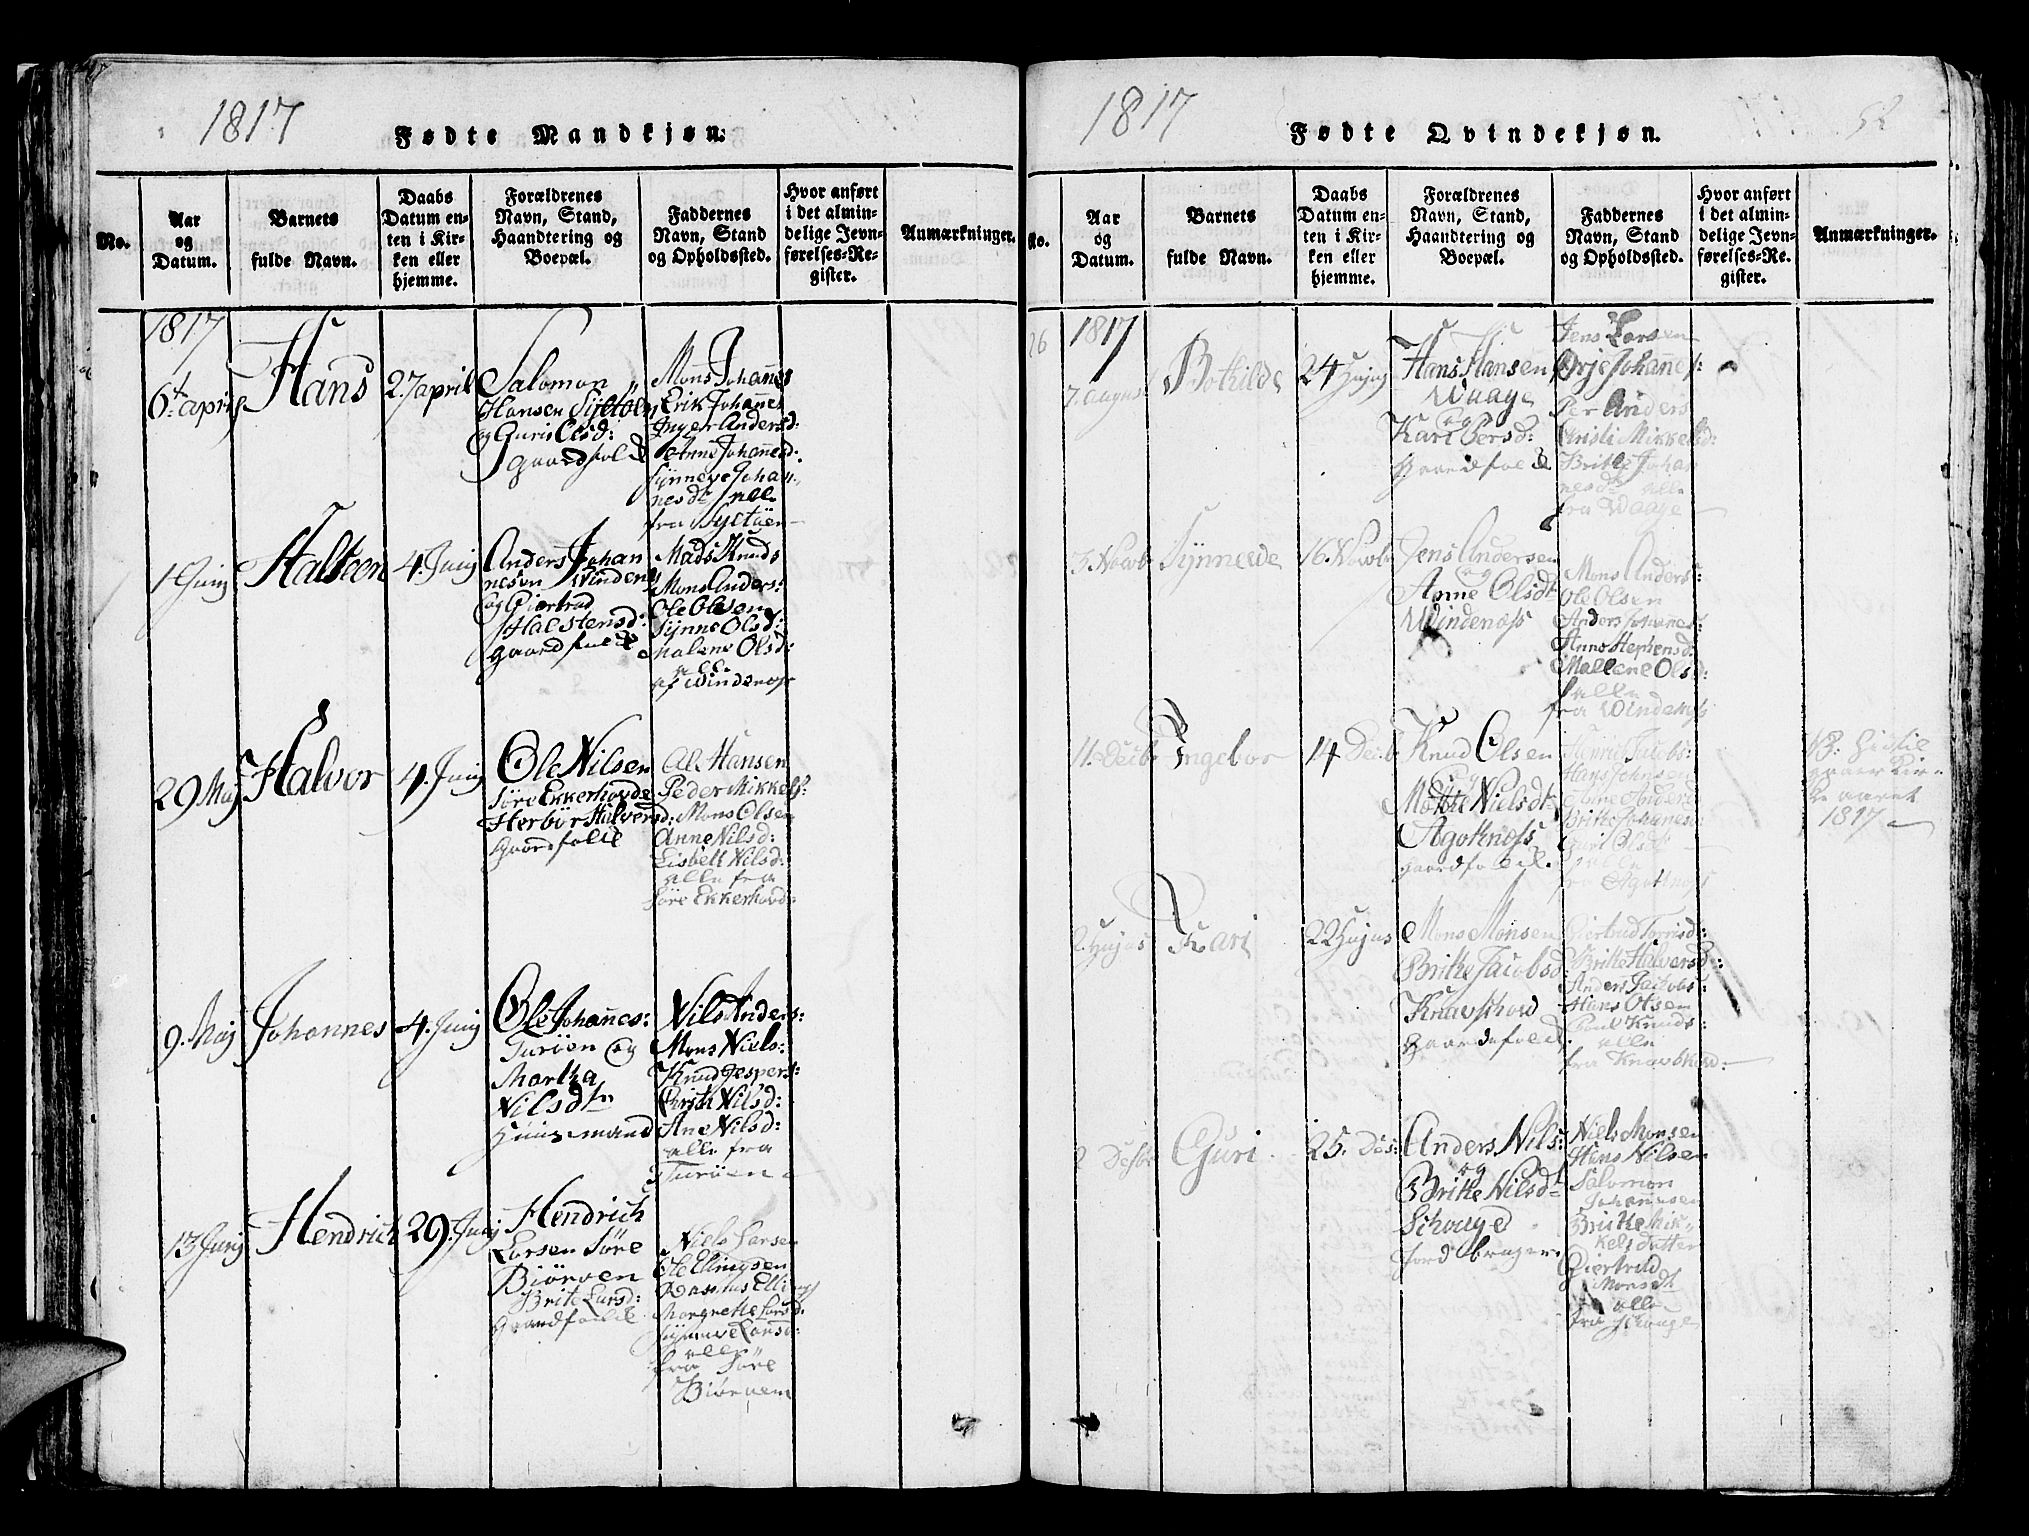 1817
Fødte Mandkjøn.
No.
Aar
og
Datum.
Barnets
fulde Navn.
Daabs
Datum en-
ten i Kir-
ken eller
hjemme.
Forældrenes
Navn, Stand,
Haandtering og
Boepæl.
Faddernes
Navn, Stand
og Opholdssted.
Hvor anført
i det almin-
delige Jevn-
førelses-Re-
gister.
Anmærkninger.
1817
6t april
Hans
27 april
Salomon
Hansen Syltøen
og Guri Olsd:
gaardfolk
Mons Johannes
Erik Johannes
Inger Andersd:
Anne Johannesd:
Synneve Johan-
nesdt alle
fra Syltøen
1 Junij
Halsteen
4. Junij
Anders Johan
nesen Windenes
og Giertrud
Halstensd:
gaardfolk
Mads Knuds
Mons Anders:
Ole Olsen
Synne Olsd:
Malene Olsd:
alle
af Windenæs
29 Maj
Halvor
4. Junij
Ole Nilsen
Søre Ekkerhovde
Herbor Halversd:
gaardfolk
Ole Hansen
Peder Mikkels:
Mons Olsen
Anne Nilsd:
Lisbett Nilsd:
alle fra
Søre Ekkerhovde
9. Maij
Johannes
4. Junij
Ole Johanes:
Turøen og
Martha
Nilsdtr
Huusmand
Nils Anders:
Mons Niels:
Knud Jespers:
Christi Nilsd:
Ane Nilsd:
alle fra
Turøen
13 Junij
Hendrich
29. Junij
Hendrich
Larsen Søre
Biøroen
Brite Larsd:
Gaardfolk
Niels Larsen
Ole Ellingsen
Rasmus Ellings
Margrethe Larsd:
Synneve Larsd:
alle
fra Søre
Biøroen
1817
52
Fødte Qvindekjøn.
No.
Aar
og
Datum.
Barnets
fulde Navn.
Daabs
Datum en-
ten i Kir-
ken eller
hjemme.
Forældrenes
Navn, Stand,
Haandtering og
Boepæl.
Faddernes
Navn, Stand
og Opholdssted.
Hvor anført
i det almin-
delige Jevn-
førelses-Re-
gister.
Anmærkninger.
26
1817
7. august
Bothilde
24 Hujus
Hans Hansen
Waage
og
Kari Persd:
Gaardfolk
Jens Larsen
Ørje Johannes:
Per Anders
Christi Mikkelsd:
Britte Johan
nesdt alle
fra Waage
3. Novbr
Synneve
16. Novbr
Jens Andersen
og
Anne Olsdt
Windenæss
Mons Anders:
Ole Olsen
Anders Johannes:
Anne Stephensd:
Mallene Olsd:
alle
fra Windenæss
11. Decbr
Ingebor
14 Decb
Knud Olsen
og
Mætte Nielsdt
Agotnæss
gaardfolk.
Jacobs:
Hans Johnsen
Anne Andersd
Britte Johannesd:
Guri Olsdt
alle
fra Agotnæss
NB:
gaaer Kir-
ke aaret
1817
2 Hujus
Kari
22 Hujus
Mons Monsen
Britte Jacobsd
Knavschow
Gaardefolk.
Giertrud Torrisd:
Britte Halversd:
Anders Jacobs:
Hans Olsen
Knuds:
alle
fra Knavskow:
2 Desbr
Guri
25. Des:
Anders Nils:
og
Britte Nilsdt
Schouge
Jordbruger
Niels Monsen
Hans Nilsen
Salomon
Johannesen
Britte Mik-
kels datter
Giertrud
Monsdt
alle
fra Schouge